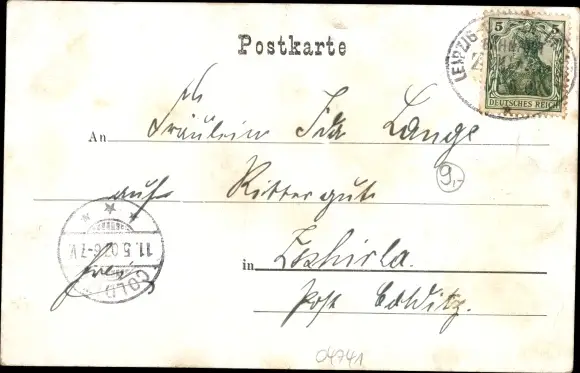 Postkarte
5 5
DEUTSCHES REICH
LEIPZIG
An Fräulein Ida Lange
9,-
auf Rittergute
11.5.07.6-7V.
in Zschirla.
COLD
frei
Post Colditz.
04741